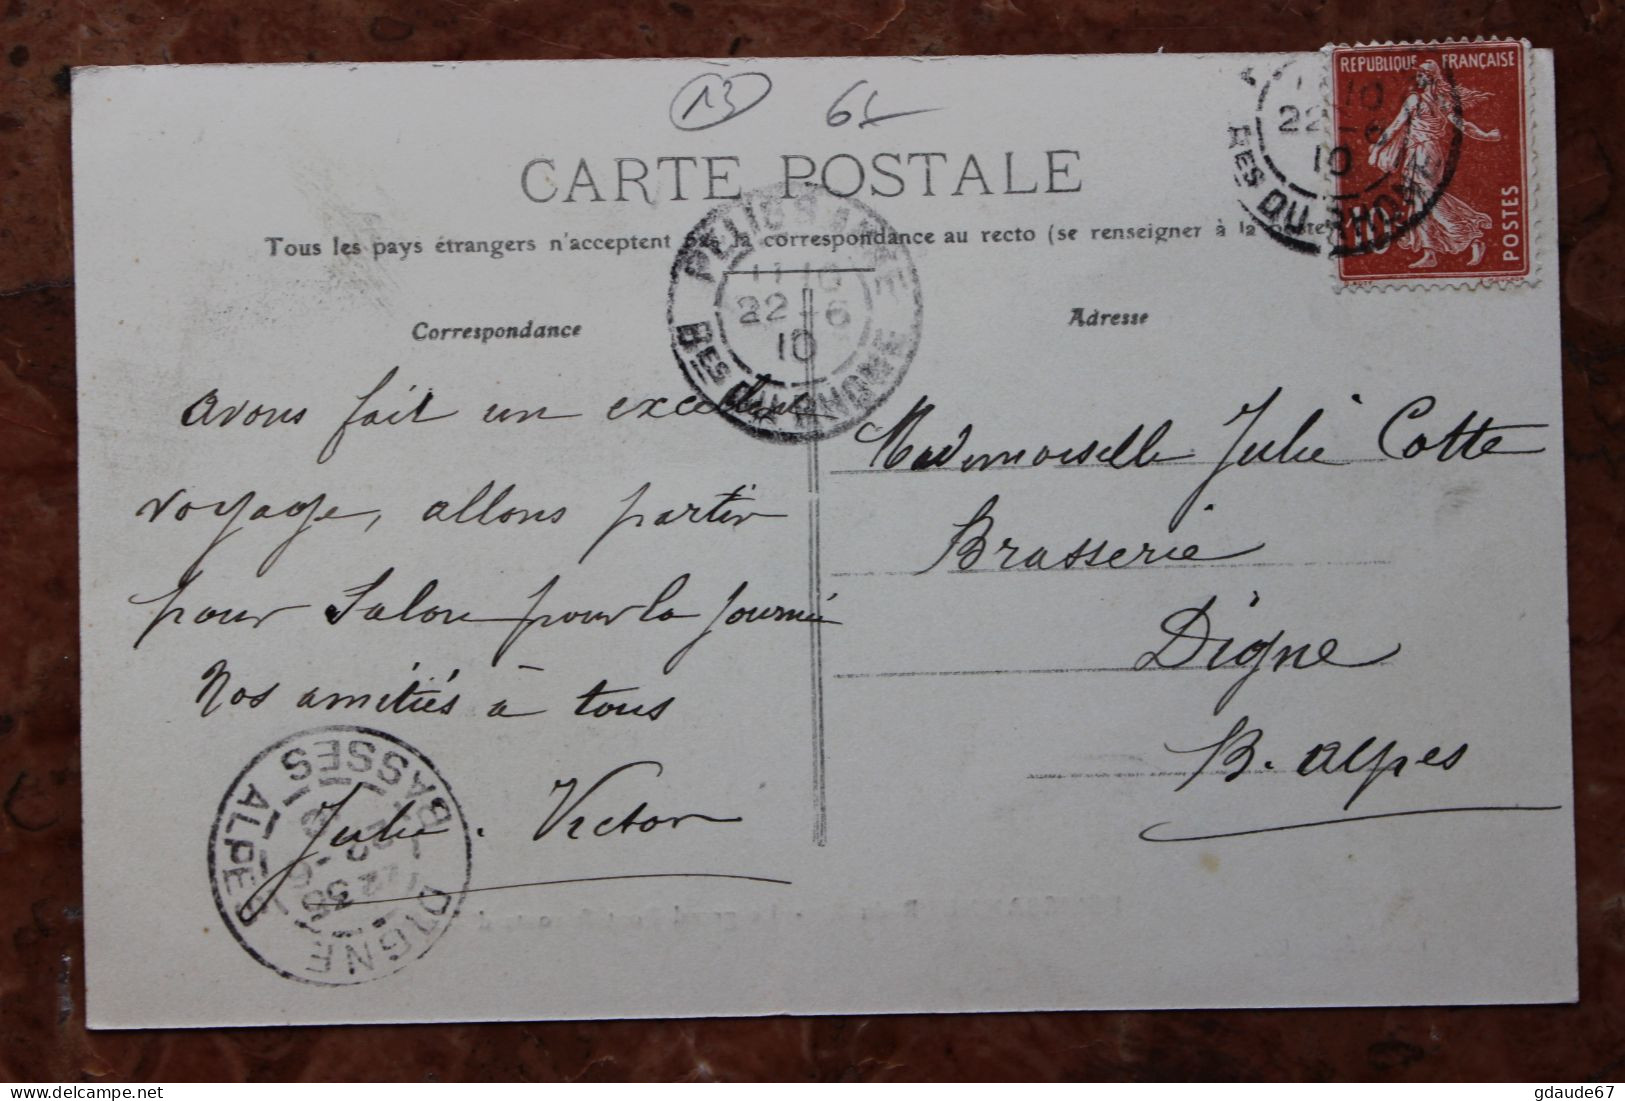 13 6L
CARTE POSTALE
Tous les pays étrangers n'acceptent pas la correspondance au recto (se renseigner à la poste)
Correspondance
Avons fait un excellent
voyage, allons partir
pour Salon pour la journée
Nos amitiés à tous
Julie. Victor
Adresse
Mademoiselle Julie Cotte
Brasserie
Digne
B. Alpes
REPUBLIQUE FRANÇAISE
POSTES
10
22-6
10
BES DU RHONE
11 10
22-6
10
BES DU RHONE
DIGNE
BASSES ALPES
gdaude67